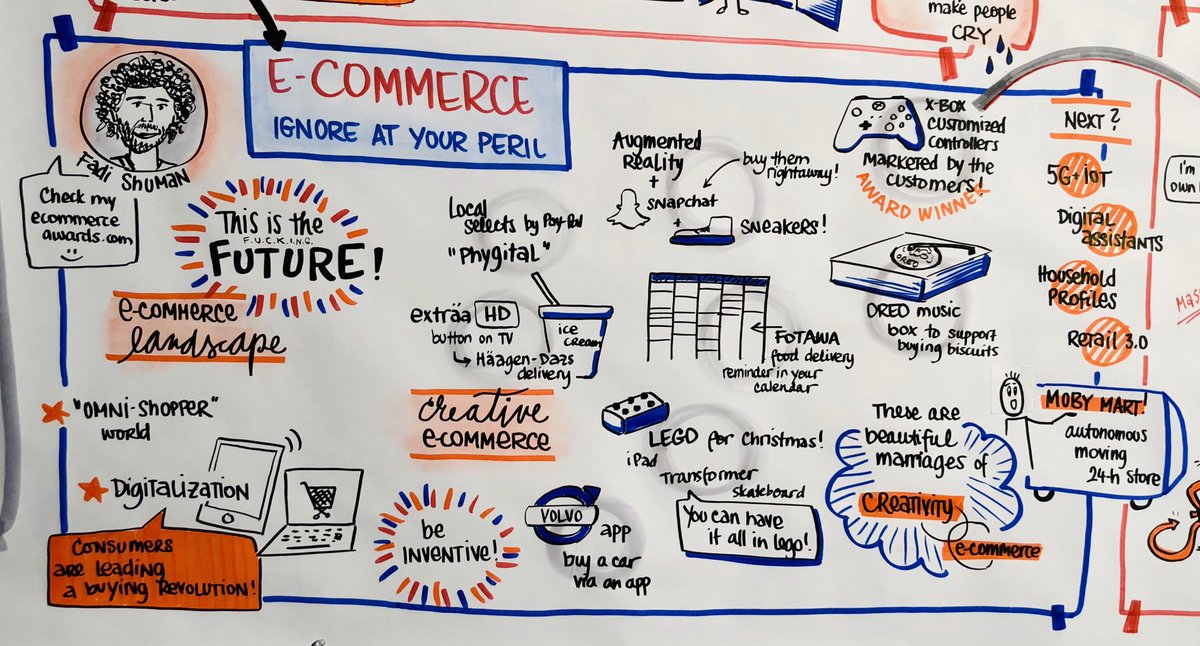 make people
CRY
E-COMMERCE
IGNORE AT YOUR PERIL
Fadi Shuman
Check my
ecommerce
awards.com
This is the
F.U.C.K.I.N.G.
FUTURE!
e-commerce
landscape
"OMNI-SHOPPER"
world
DIGITALIZATION
CONSUMERS
are leading
a buying REVOLUTION!
Local
selects by Pay-Pal
"Phygital"
extråa HD
button on TV
Häagen-Dazs
delivery
ice
cream
creative
e-commerce
be
INVENTIVE!
Augmented
Reality
+
snapchat
+
buy them
rightaway!
SNEAKERS!
FOTAWA
food delivery
reminder in your
calendar
LEGO for Christmas!
iPad
Transformer
skateboard
You can have
it all in lego!
VOLVO
app
buy a car
via an app
X-BOX
customized
controllers
MARKETED by the
customers!
AWARD WINNER
OREO
OREO music
box to support
buying biscuits
These are
beautiful
marriages of
creativity
e-commerce
NEXT?
5G+IoT
Digital
assistants
Household
Profiles
Retail 3.0
MOBY MART!
autonomous
moving
24-h store
I'm
own